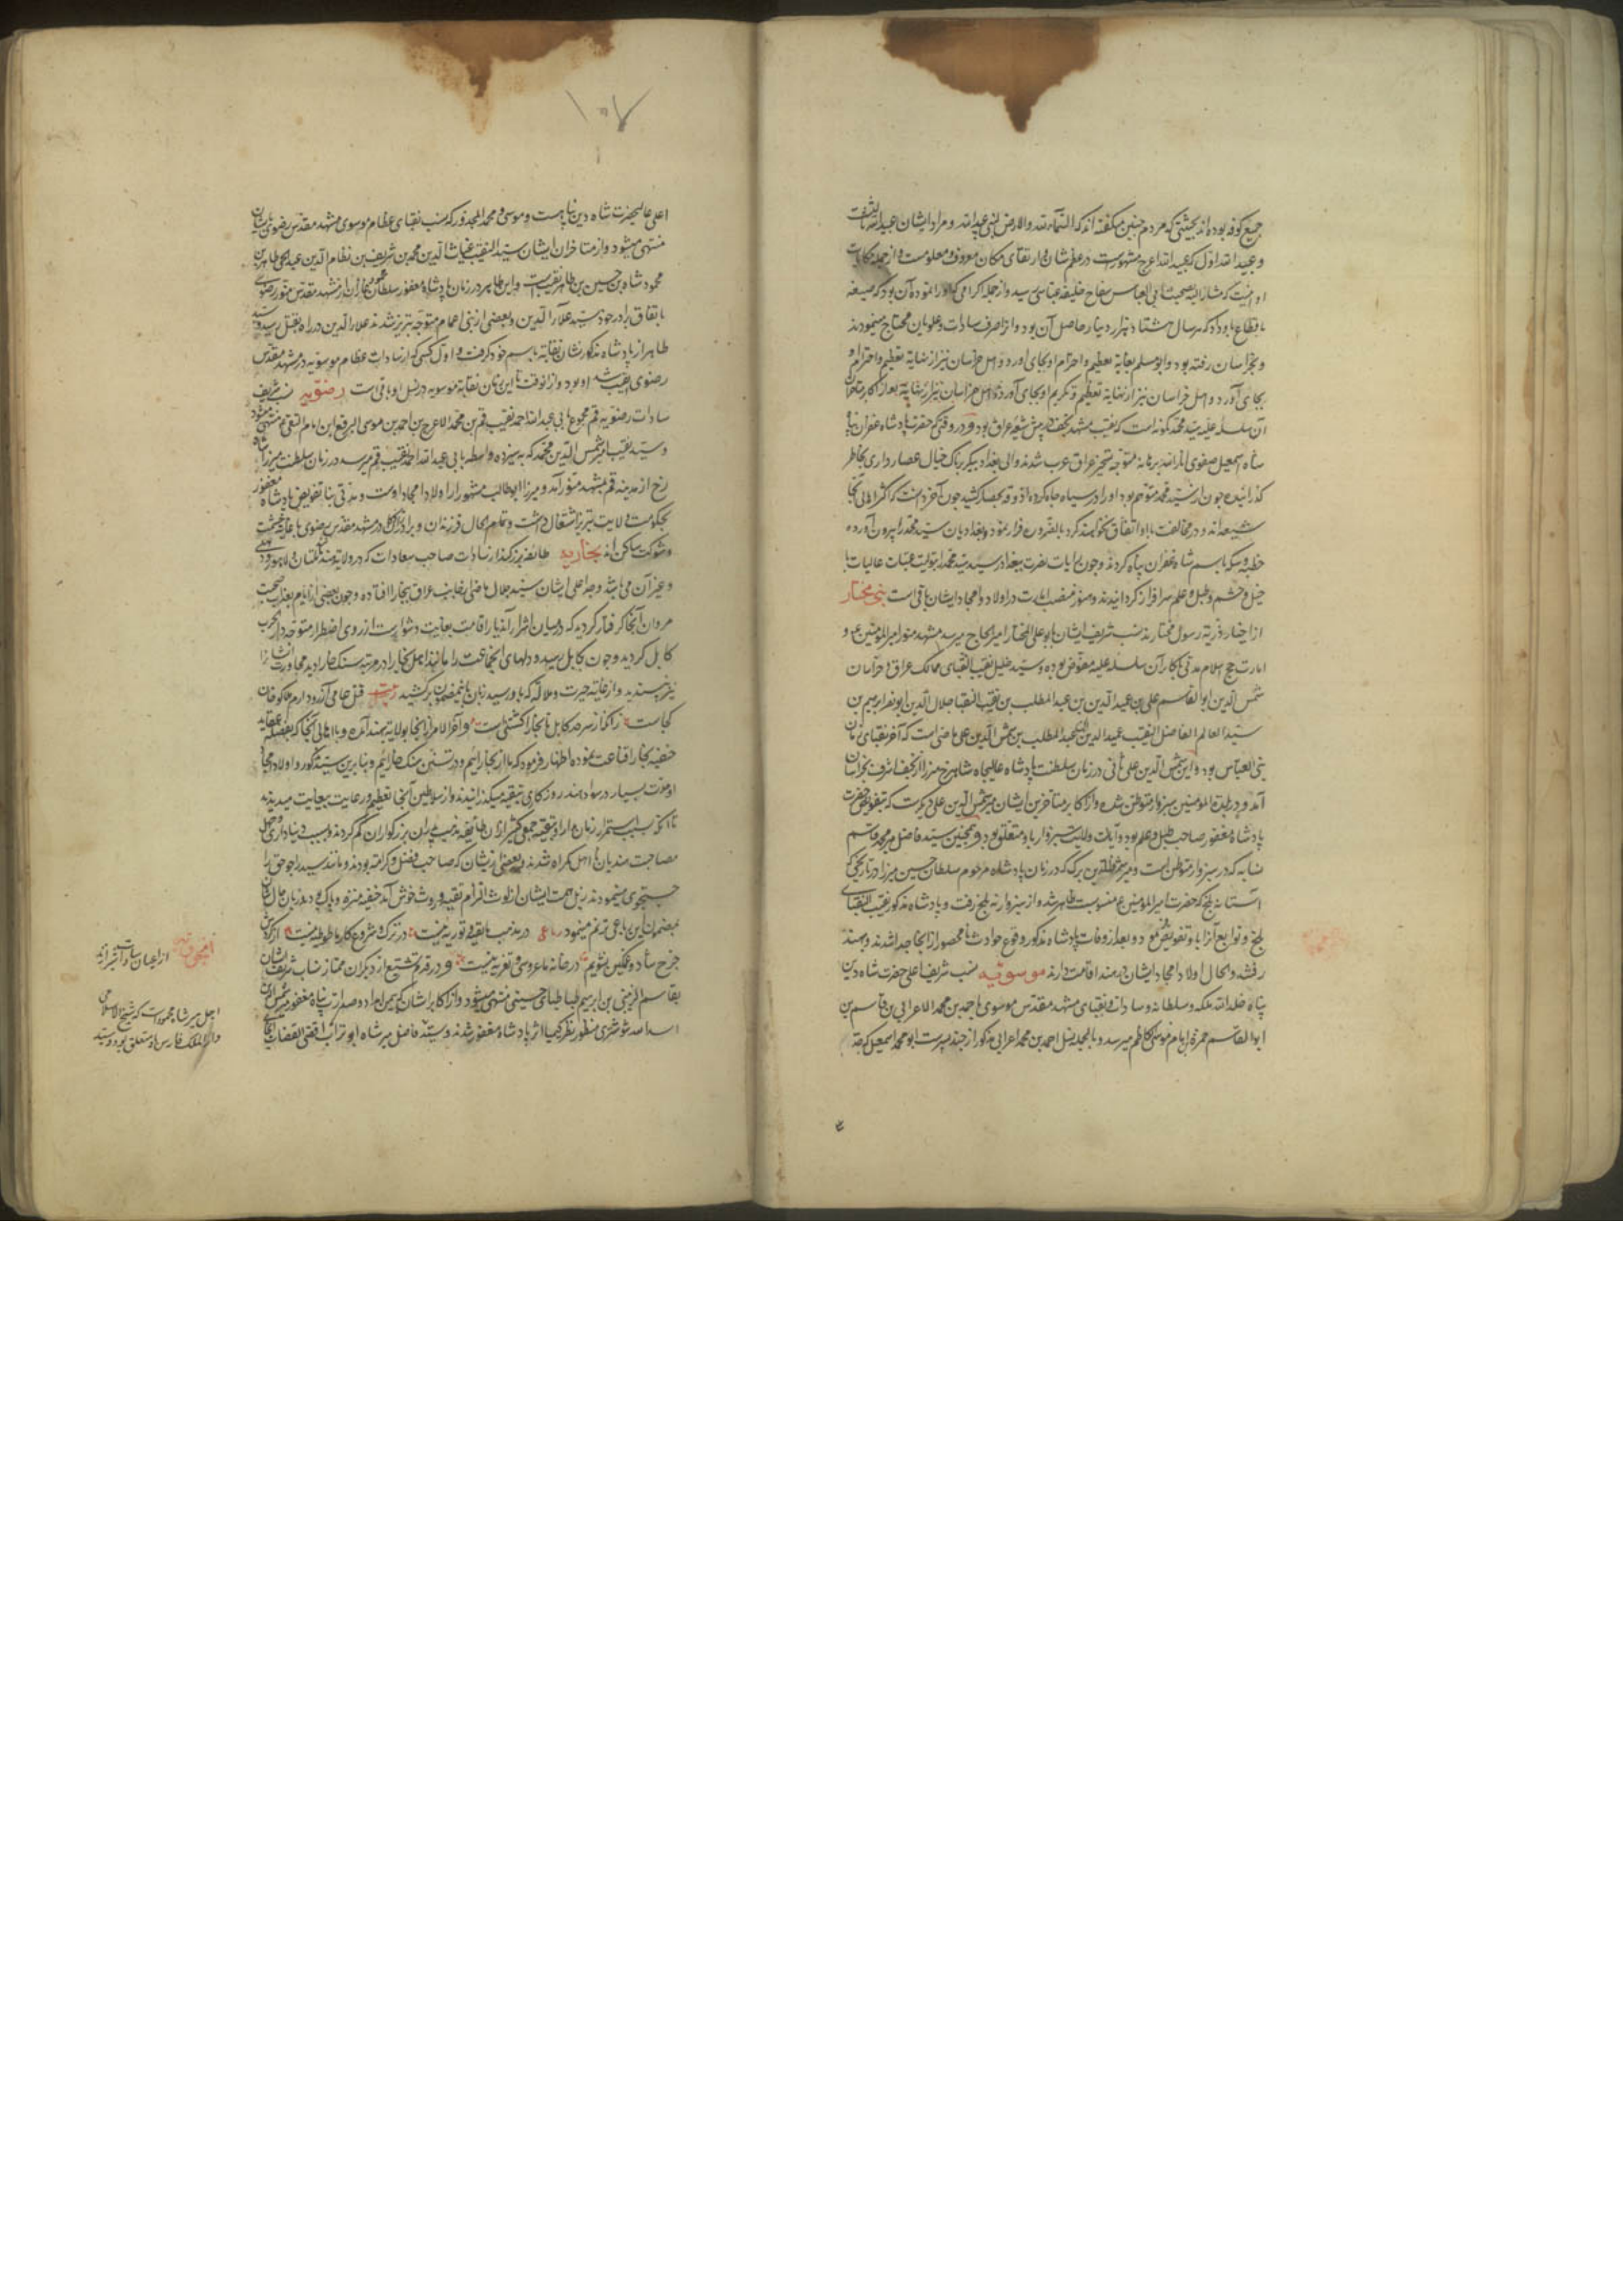 جمیع کوفه بوده‌اند بحیثیتی که مردم چنین میگفته‌اند که السماء لله والارض لبنی عبید الله و مراد ایشان عبید الله ثالثست
و عبید الله اول که بعبید الله اعرج مشهورست در عظم شان و ارتقای مکان معروف و معلومست و از جمله حکایات
او آنست که مشار الیه بصحبت ابی العباس سفاح خلیفه عباسی رسید و از جمله اکرامی که او را نموده آن بود که ضیعه
باقطاع باو داد که هر سال هشتاد هزار دینار حاصل آن بود و او آنرا صرف سادات و علویان محتاج مینمودند
و بخراسان رفته بود و ابو مسلم بغایة تعظیم و احترام او بجای آورد و اهل خراسان نیز از نهایة تعظیم و احترام او
بجای آورد و اهل خراسان نیز از نهایة تعظیم و تکریم او بجای آورد
آن سلسله علیه سید محمد کمونه است که نقیب مشهد نجف و پیش شیعه عراق بود و در وقتی که حضرت پادشاه غفران پناه
شاه اسمعیل صفوی انار الله برهانه متوجه تسخیر عراق عرب شدند والی بغداد بیکر بیاک خیال حصار داری بخاطر
گذرانیده چون از سید محمد متوهم بود او را در سیاه چاه کرده آذوقه بحصار کشید چون آخر دانست که اکثر اهالی آنجا
شیعه‌اند و در مخالفت با او اتفاق نخواهند کرد بالضروره فرار نمود و بغدادیان سید محمد را بیرون آورده
خطبه و سکه باسم شاه غفران پناه کردند و چون رایات نصرت ببغداد رسید سید محمد را بتولیت عتبات عالیات با
خیل و حشم و طبل و علم سرافراز گردانیدند و هنوز منصب امارت در اولاد و امجاد ایشان باقی است بنی مختار
از اخیار ذریه رسول مختارند نسب شریف ایشان بابو علی المختار امیر الحاج میرسد مشهد منور امیر المؤمنین ع و
امارت حج اسلام مدتی با کابر آن سلسله علیه مفوض بوده و سید جلیل نقیب النقبای ممالک عراق و خراسان
شمس الدین ابو القاسم علی بن عمید الدین بن عبد المطلب بن نقیب النقبا جلال الدین ابو نصر ابرهیم بن
سید العالم الفاضل النقیب عمید الدین عبد المطلب بن شمس الدین علی ماضی است که آخر نقبای زمان
بنی العباس بود و این شمس الدین علی ثانی در زمان سلطنت پادشاه عالیجاه شاهرخ میرزا از نجف اشرف بخراسان
آمد و در بلدة المؤمنین سبزوار متوطن شده و از اکابر متأخرین ایشان میر شمس الدین علی دیگرست که بتفویض حضرت
پادشاه مغفور صاحب طبل و علم بود و ایالت ولایت سبزوار باو متعلق بود و همچنین سید فاضل میر محمد قاسم
نسابه که در سبزوار متوطن است و میر شمس الدین بزرگ که در زمان پادشاه مرحوم سلطان حسین میرزا در تاریخی که
آستانه بلخ که بحضرت امیر المؤمنین ع منسوبست ظاهر شد و از سبزوار به بلخ رفت و پادشاه مذکور نقیب النقبای
بلخ و توابع آنرا باو تفویض فرمود و بعد از وفات پادشاه مذکور و وقوع حوادث نامحصور از آنجا جدا شدند و بهند
رفتند و الحال اولاد امجاد ایشان در هند اقامت دارند موسویه نسب شریف اعلی حضرت شاه دین
پناه خلد الله ملکه و سلطانه و سادات و نقبای مشهد مقدس موسوی باحمد بن محمد الاعرابی بن قاسم بن
ابو القاسم حمزة بن امام موسی کاظم میرسد و بالجمله نسل احمد بن محمد اعرابی مذکور از چند پسرست ابو محمد اسمعیل که جد
۱۰۷
اعلی عالیحضرت شاه دین پناهست و موسی و محمد المجذور که نسب نقبای عظام موسوی مشهد مقدس رضوی بایشان
منتهی میشود و از متأخران ایشان سید النقیب غیاث الدین محمد بن شریف بن نظام الدین عبد الحی طاهر بن
محمود شاه بن حسین بن طاهر نقیبست و این طاهر در زمان پادشاه مغفور سلطان محمود غازان از مشهد مقدس منور رضوی
باتفاق برادر خود سید علاء الدین و بعضی از بنی اعمام متوجه تبریز شدند علاء الدین در راه بقتل رسید و سید
طاهر از پادشاه مذکور نشان نقابة باسم خود گرفت و اول کسی که از سادات عظام موسویه در مشهد مقدس
رضوی نقیب شد او بود و از آنوقت تا این زمان نقابة موسویه در نسل او باقی است رضویه نسب شریف
سادات رضویه قم مجموع بابی عبد الله احمد نقیب قم بن محمد الاعرج بن احمد بن موسی المبرقع ابن امام التقی ع منتهی میشود
و سید نقیب امیر شمس الدین محمد که به سیزده واسطه بابی عبد الله احمد نقیب قم میرسد در زمان سلطنت میرزا شاه
رخ از مدینه قم بمشهد منور آمد و میرزا ابو طالب مشهور از اولاد امجاد اوست و مدتی بنا بتفویض پادشاه مغفور
بحکومت ولایت تبریز اشتغال داشت و تمام الحال فرزندان و برادرزادگان در مشهد مقدس رضوی بغایت حشمت
و شوکت ساکن‌اند بخاریه طائفه بزرگند از سادات صاحب سعادات که در ولایة هند ملتان و لاهور و دهلی
و غیر آن می‌باشند و جد اعلی ایشان سید جلال ماضی از جانب عراق ببخارا افتاده و چون بعضی از ایام بعذاب صحبت
مردان آنجا گرفتار گردید که در میان اشرار آن دیار اقامت بغایت دشوارست از روی اضطرار متوجه دار الحرب
کابل گردید و چون بکابل رسید و دلهای آنجماعت را مانند اهل بخارا در مرتبه سنگ خارا دید مجاورت آنشان را
نیز نپسندید و از غایة حیرت و ملالة که باو رسید زبان باین مضمون برکشید بیت قتل حامی آرزو دارم ماکو خان
کجاست زانکه از سرحد کابل تا بخارا کشتنی است و آخر الامر از آنجا بولایة هند آمده و با اهالی آنجا که بعضی عقاید
حنفیه بخارا قناعت نموده اظهار فرمود که ما از بخارائیم و در تسنن سنگ خارائیم و بنا برین سید مذکور و اولاد امجاد
او مدت بسیار در سواد هند روزگاری بتقیه میگذرانیدند و از سلاطین آنجا تعظیم و رعایت بیغایت میدیدند
تا آنکه بسبب استمرار زمان مدارا و تقیه جمعی کثیر از آن طائفه مذهب پدران بزرگواران گم کردند و بسبب دنیاداری و جهل
مصاحبت هندیان با اهل گمراه شدند و بعضی از ایشان که صاحب فضل و کرامة بودند و مانند سید راجو حق را
جستجوی مینمودند ذیل همت ایشان از لوث التزام تقیه و روث خوش‌آمد حنفیه منزه و پاک بود و زبان حال ایشان
بمضمون این رباعی ترنم مینمود رباعی در مذهب ما تقیه و توریه نیست در ترک و شروع کار ما طوطیه نیست از گردش
چرخ شاد و غمگین نشویم در خانه ما عروسی و تعزیه نیست و در قدم تشیع از دیگران ممتاز نساب شریف ایشان
بقاسم الرسی بن ابرهیم طباطبای حسینی منتهی میشود و از اکابر ایشان کریمین امداد و صدارت پناه مغفور میر شمس الدین
اسد الله شوشتری منظور نظر کیمیا اثر پادشاه مغفور شدند و سید فاضل میر شاه ابو تراب اقضی القضات
از اعیان سادات شیرازند
اجل میر شاه محمودست که شیخ الاسلامی
دار الملک فارس باو متعلق بود و سید